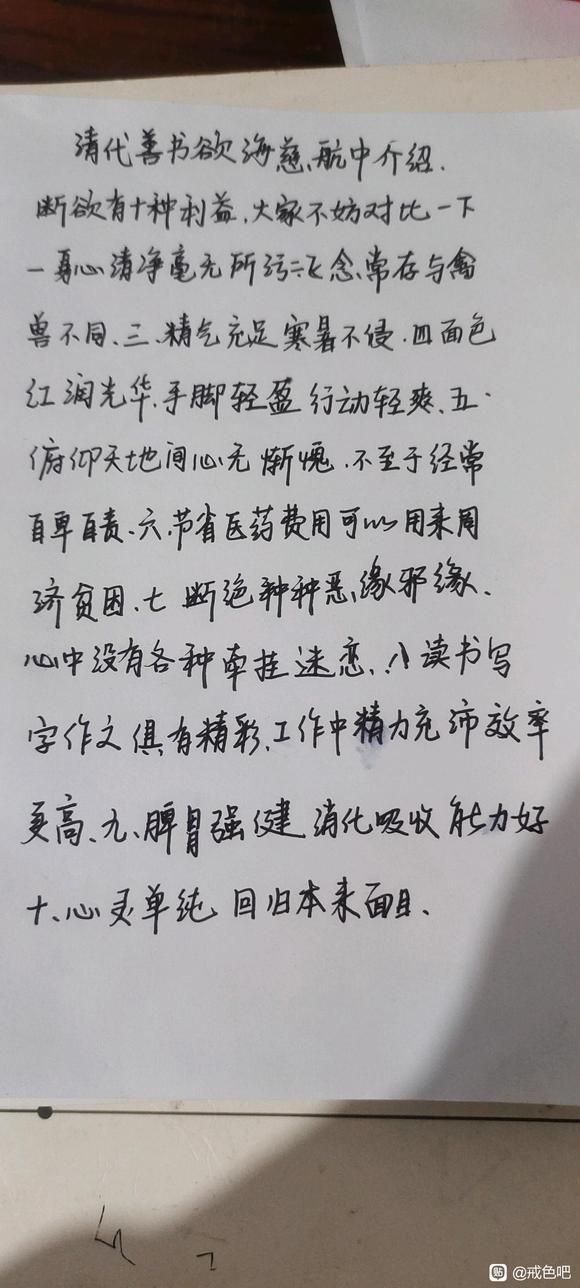 清代善书欲海慈航中介绍.
断欲有十种利益.大家不妨对比一下
一身心清净毫无所污二正念.常存与禽
兽不同、三、精气充足寒暑不侵.四面色
红润光华.手脚轻盈行动轻爽、五.
俯仰天地间心无惭愧.不至于经常
自卑自责、六.节省医药费用可以用来周
济贫困、七断绝种种恶缘邪缘、
心中没有各种牵挂迷恋、八读书写
字作文俱有精彩.工作中精力充沛效率
更高、九、脾胃强健消化吸收能力好
十、心灵单纯回归本来面目、
贴 @戒色吧